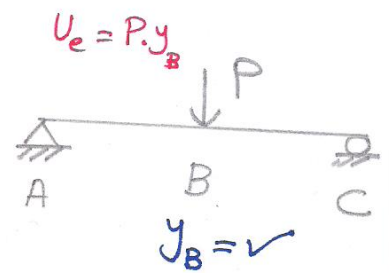 Ue = P.yB
P
A B C
yB = ✓